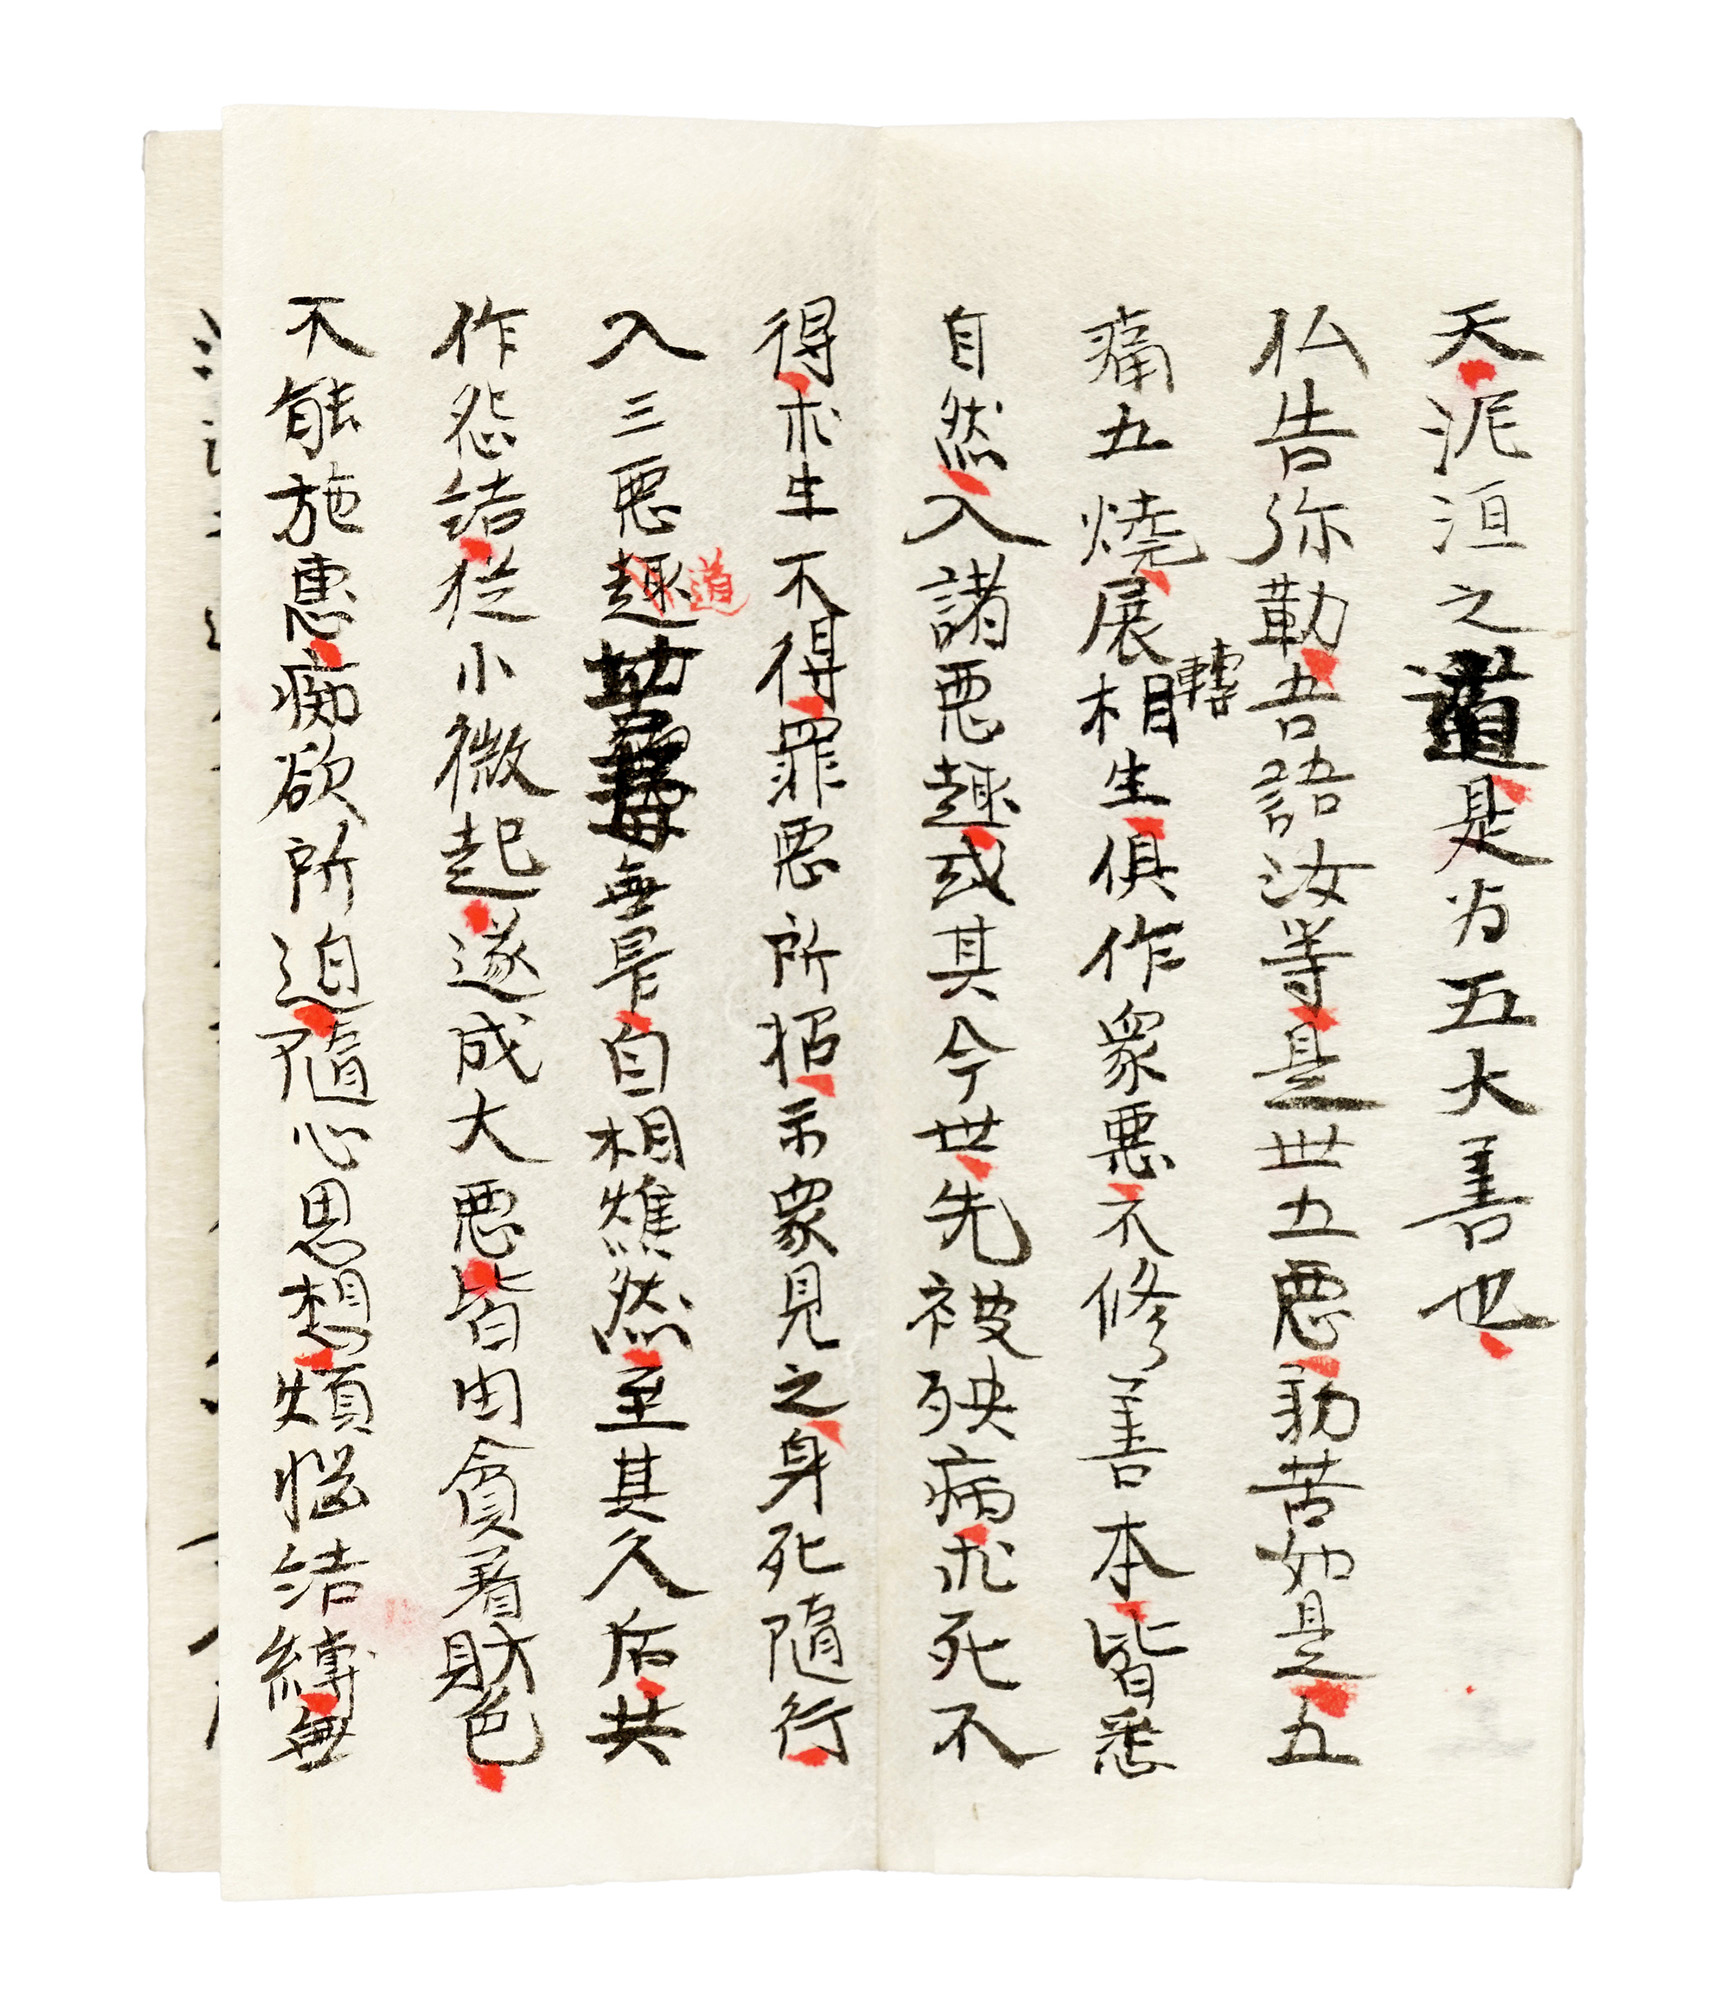 天泥洹之道是为五大善也
仏告弥勒吾語汝等是世五悪勤苦如是五
痛五燒展轉相生俱作衆悪不修善本皆悉
自然入諸悪趣或其今世先被殃病求死不
得求生不得罪悪所招示衆見之身死隨行
入三悪趣道無量自相燋然至其久后共
作怨結従小微起遂成大悪皆由貪着財色
不能施惠痴欲所迫隨心思想煩悩結縛無